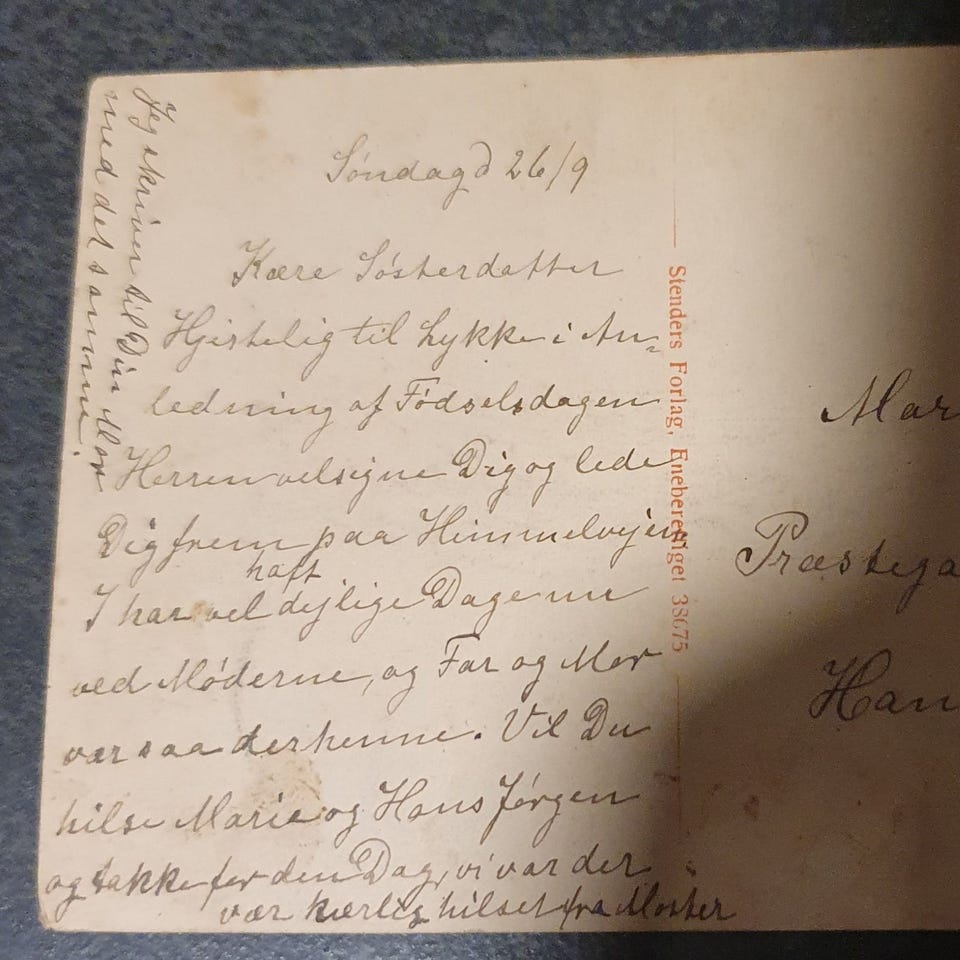 Søndag d 26/9
Kære Søsterdatter
Hjertelig til Lykke i An-
ledning af Fødselsdagen
Herren velsigne Dig og lede
Dig frem paa Himmelvejen
haft
I har vel dejlige Dage nu
ved Møderne, og Far og Mor
var saa derhenne. Vil Du
hilse Marie og Hans Jørgen
og takke for den Dag, vi var der
vær kærlig hilset fra Moster
Jeg skriver til Din Mor
med det samme.
Stenders Forlag, Eneberettiget 38675
Mar
Præstega
Han